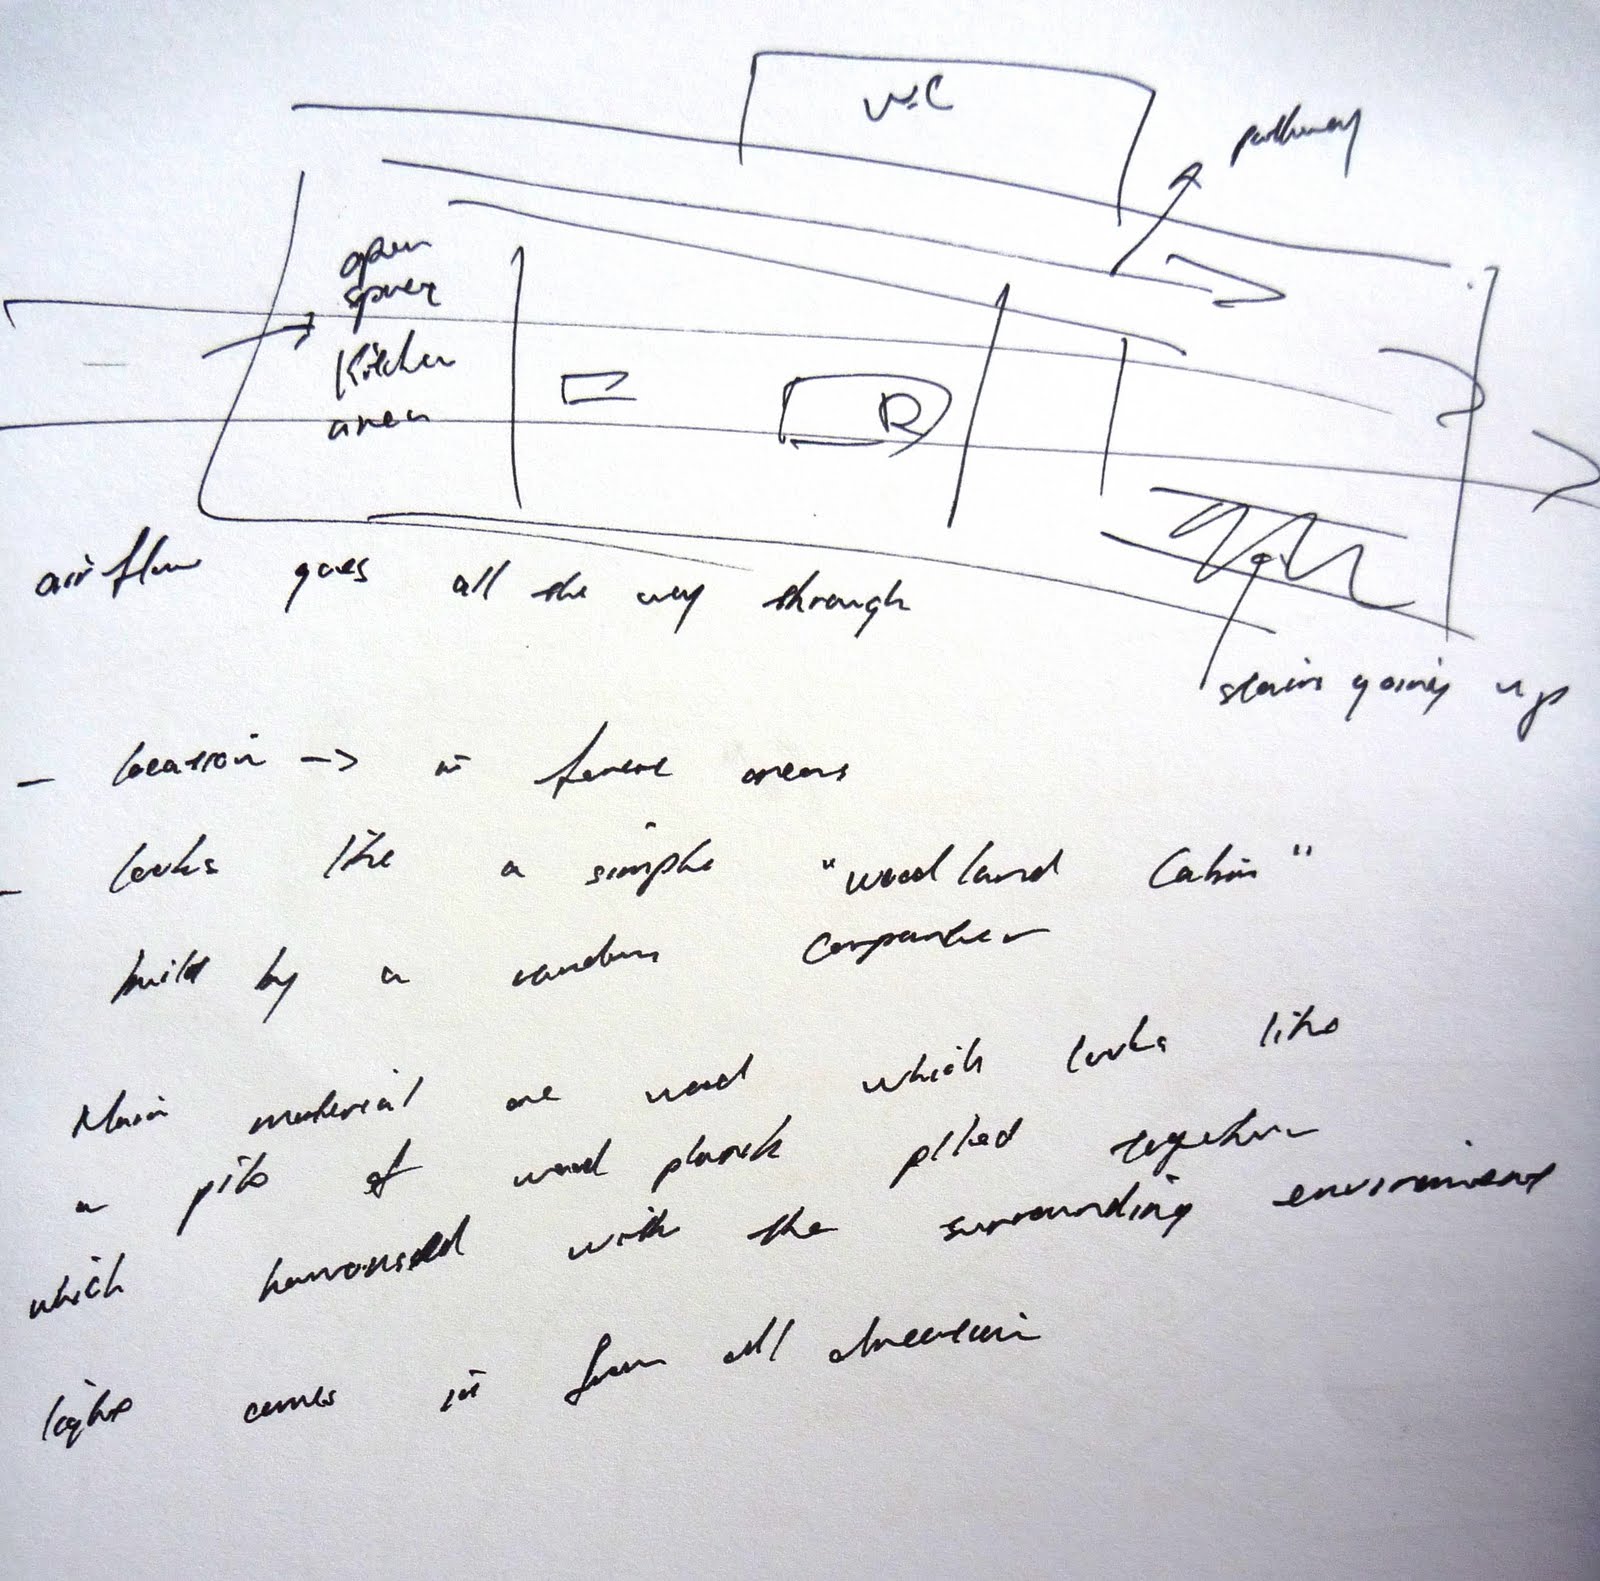 W.C
pathway
open
space
Kitchen
area
R
airflow goes all the way through
stairs going up
- location -> in areas
- looks like a simple "woodland Cabin"
build by a random carpenter
Main material are wood which looks like
a pile of wood plank piled together
which with the surrounding environment
light comes in from all direction